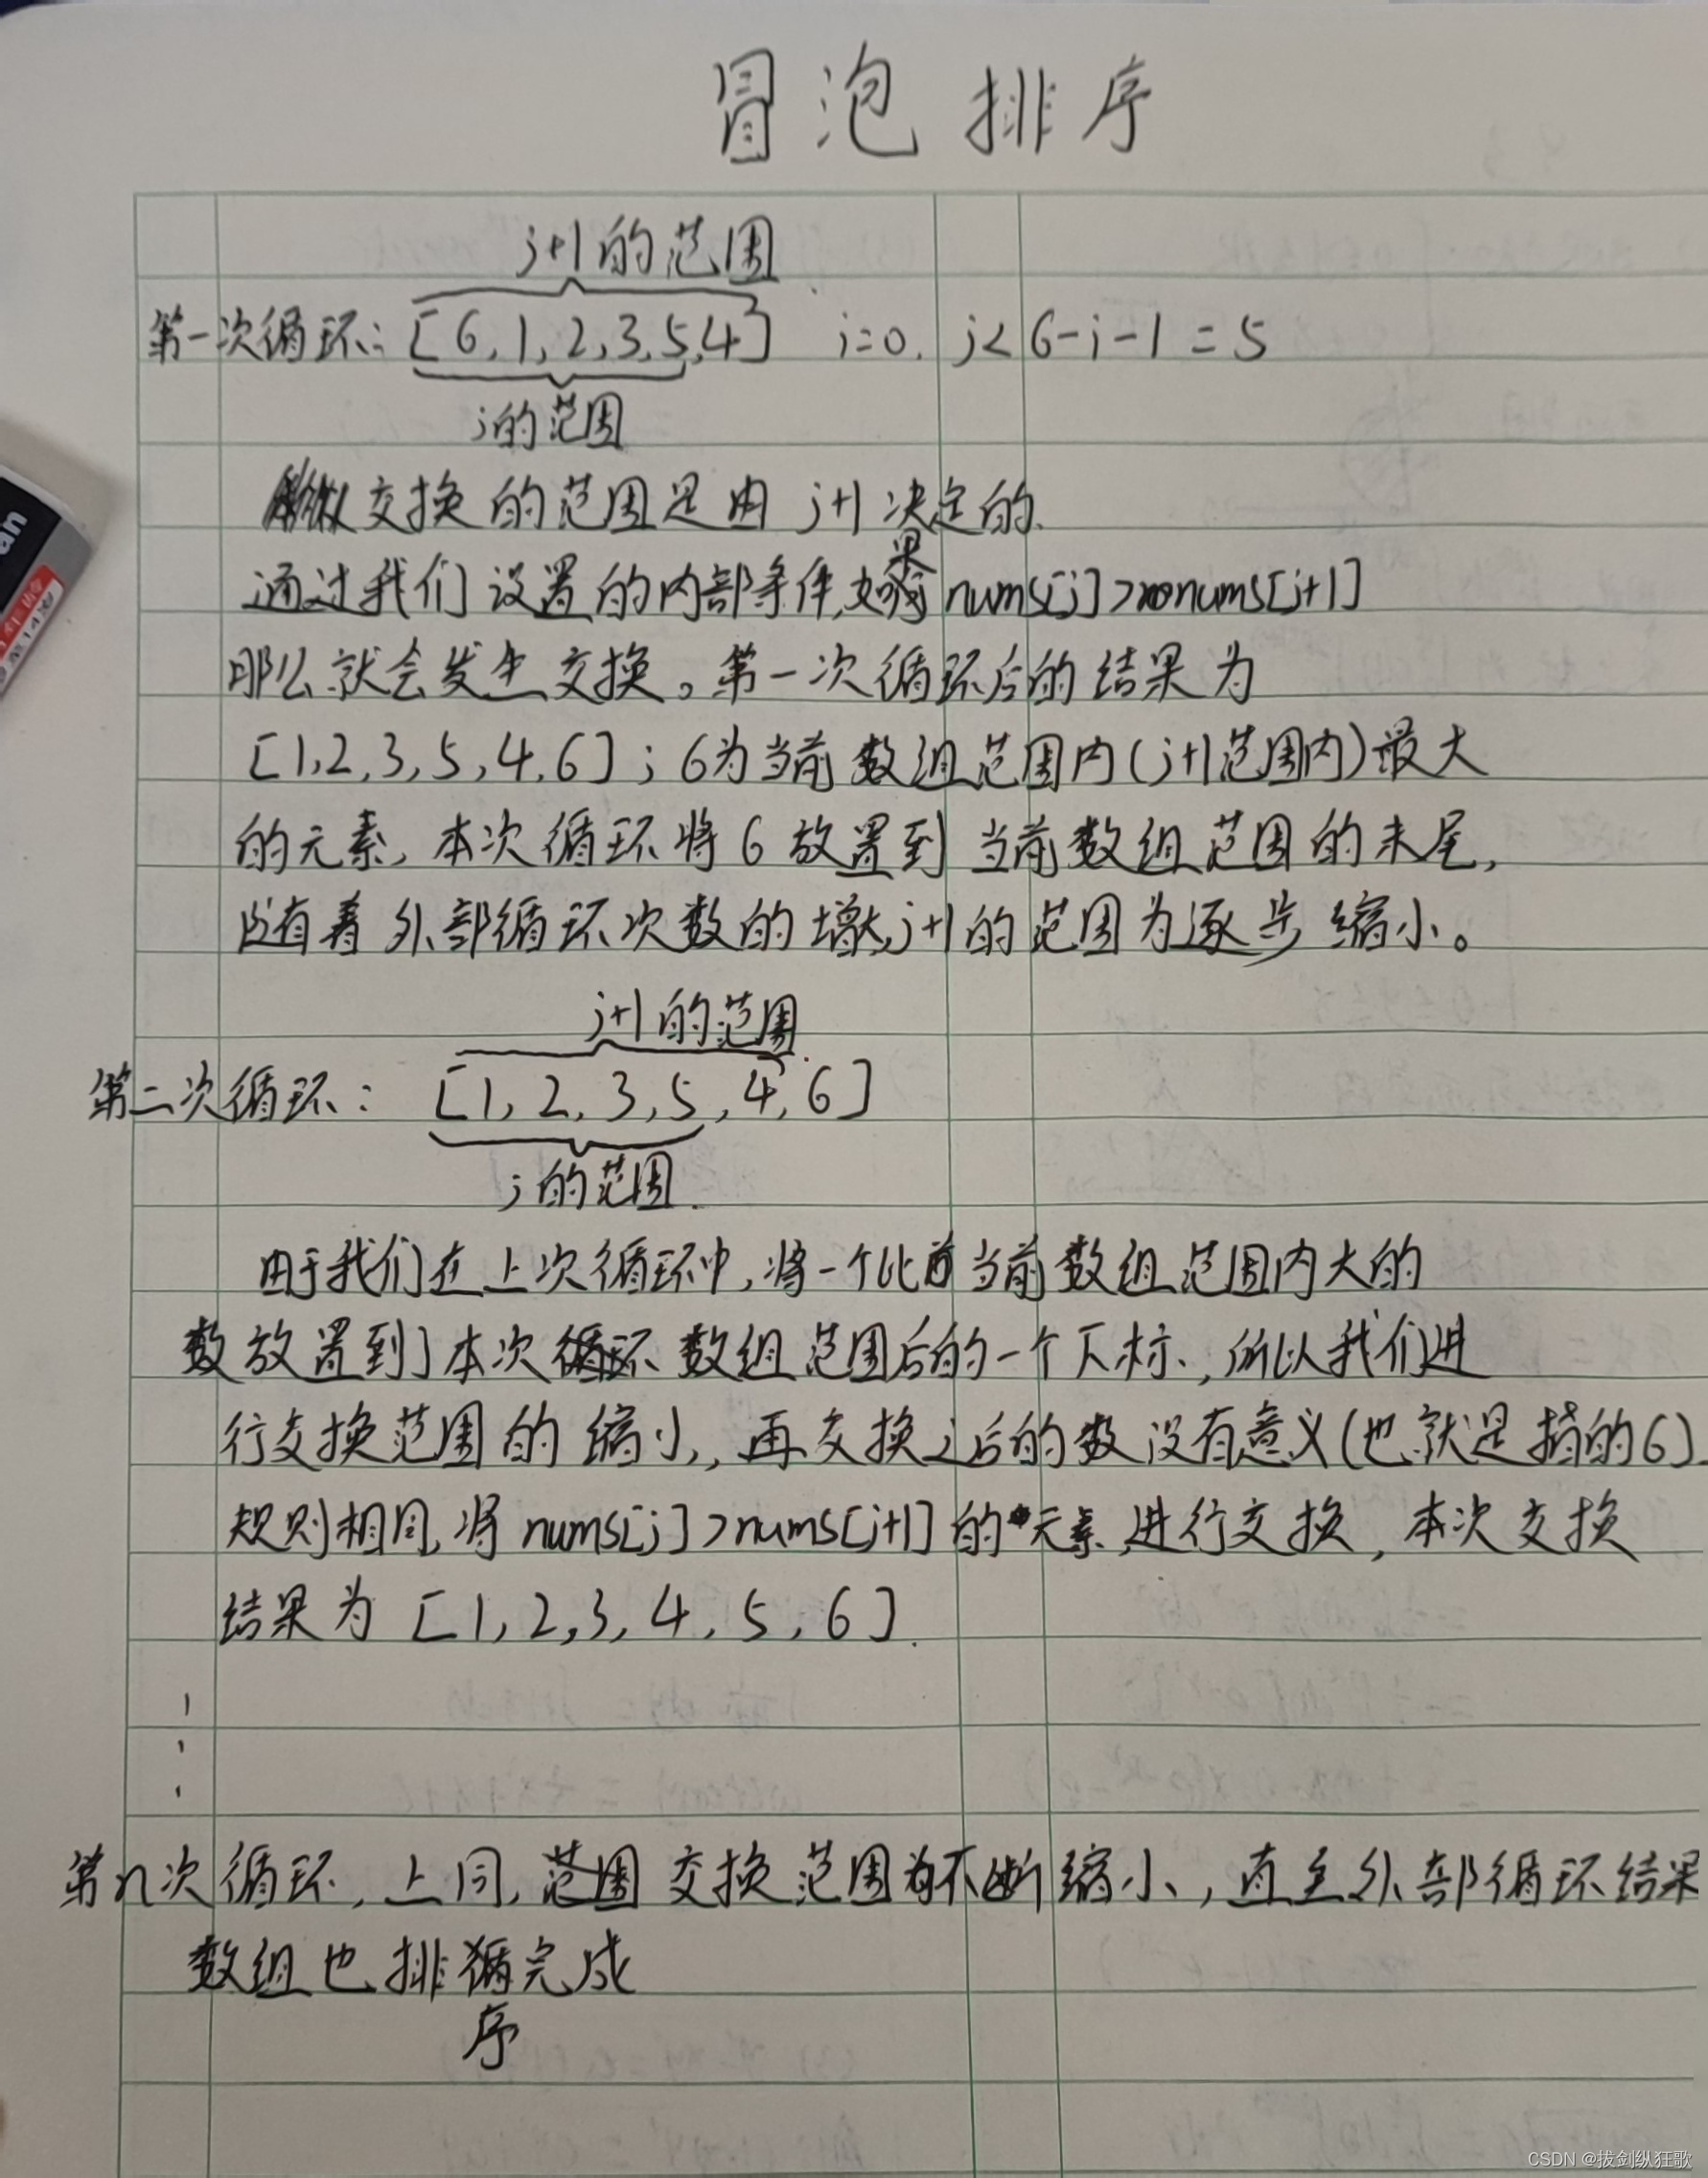 冒泡排序
j+1的范围
第一次循环: [6,1,2,3,5,4] i=0, j<6-i-1=5
j的范围
交换的范围是由 j+1 决定的.
通过我们设置的内部条件,如果 nums[j]>nums[j+1]
那么就会发生交换。第一次循环后的结果为
[1,2,3,5,4,6]; 6为当前数组范围内(j+1范围内)最大
的元素, 本次循环将6放置到当前数组范围的末尾,
随着外部循环次数的增大,j+1的范围为逐步缩小。
j+1的范围
第二次循环: [1,2,3,5,4,6]
j的范围.
由于我们在上次循环中,将一个比当前数组范围内大的
数放置到了本次循环数组范围后的一个下标,所以我们进
行交换范围的缩小,再交换之后的数没有意义(也就是指的6)
规则相同,将 nums[j]>nums[j+1]的元素进行交换,本次交换
结果为 [1,2,3,4,5,6].
第n次循环,上同,范围交换范围为不断缩小,直至外部循环结果
数组也排序完成
an
CSDN @拔剑纵狂歌